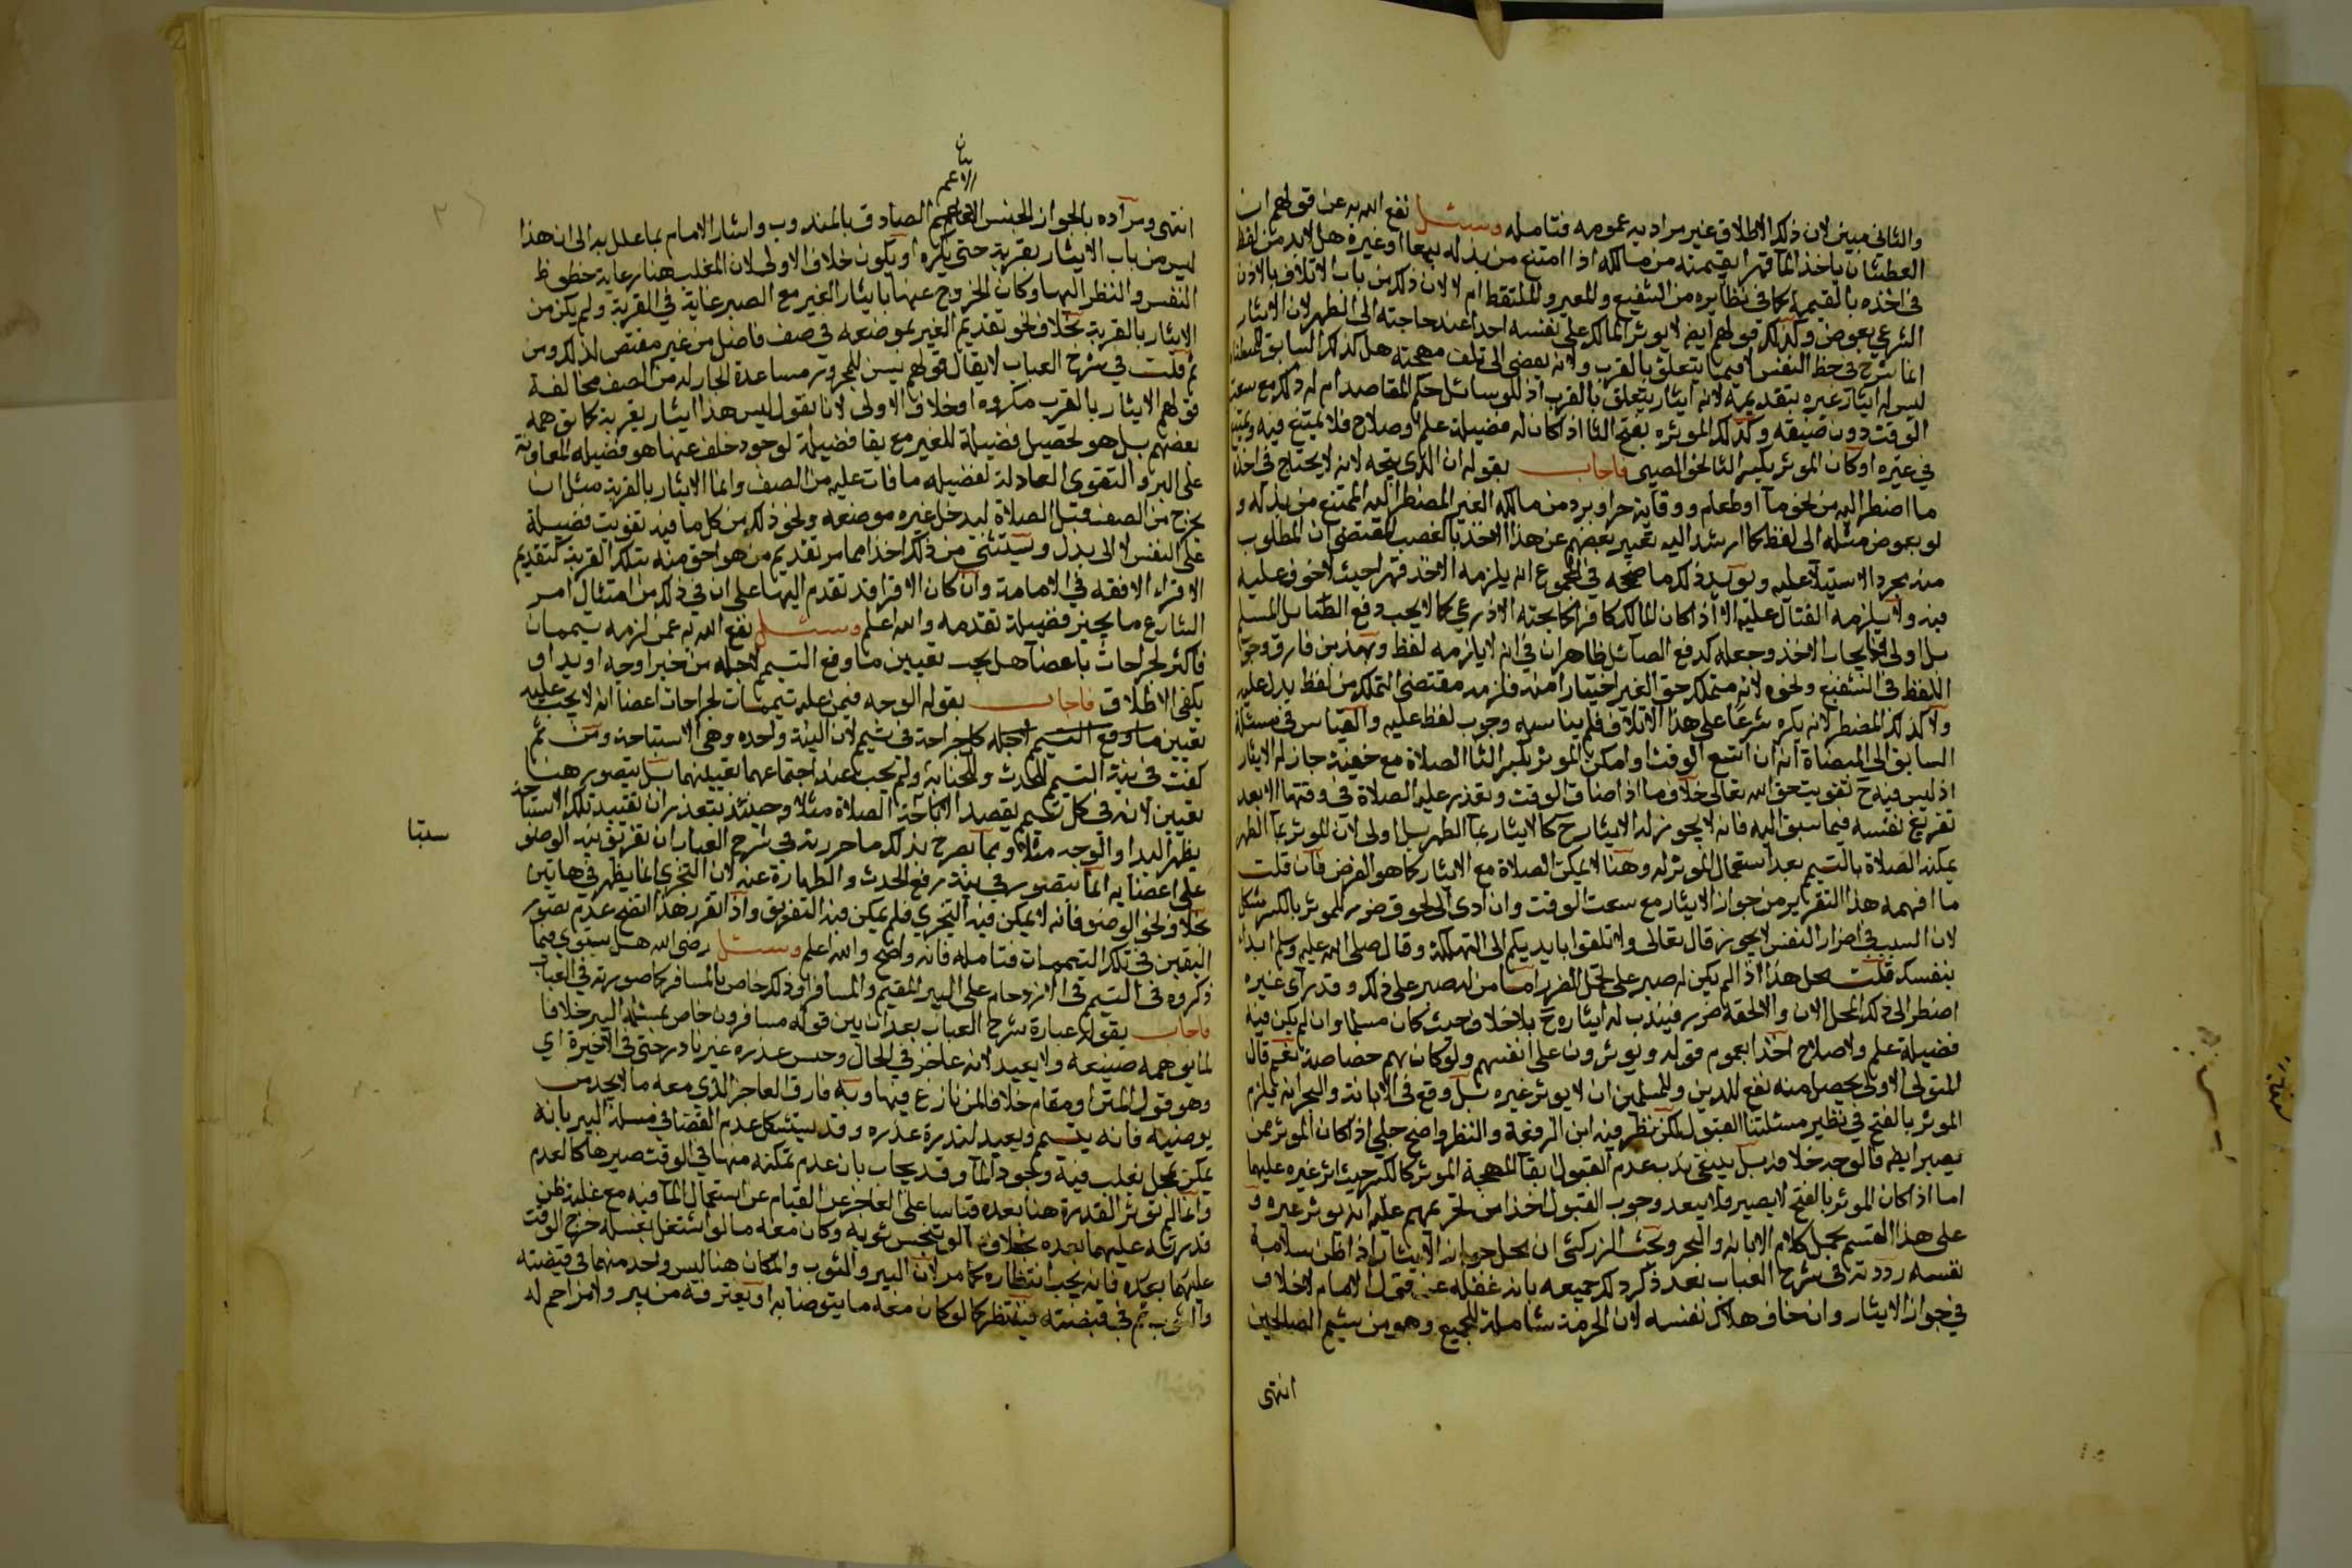 والثاني مبين لان ذلك الاطلاق غير مراد به عمومه فتامله وسئل نفع الله به عن قولهم ان
العطشان ياخذ الما قهرا بقيمته من مالكه اذا امتنع من بذله بيعا او غيره هل لابد من لفظ
في اخذه بالقيمة كما في نظايره من الشفيع والمعير والملتقط ام لا لان ذلك من باب الاتلاف بالاذن
الشرعي بعوض وكذلك قولهم ايضا لا يوثر المالك على نفسه احدا عند حاجته الى الطهر لان الايثار
انما شرع في حظ النفس لا فيما يتعلق بالقرب ولانه يفضي الى تلف مهجته هل كذلك السابق
ليس له ايثار غيره بتقديمه لانه ايثار يتعلق بالقرب اذ للوسائل حكم المقاصد ام له ذلك مع سعة
الوقت دون ضيقه وكذلك الموثره بفتح الثا اذا كان له فضيلة علم وصلاح فلا يمتنع فيه ويمتنع
في غيره او كان الموثر بكسر الثا نحو الصبي فاجاب بقوله ان الذي يتجه لانه لا يحتاج في اخذ
ما اضطر اليه من نحو ما او طعام ووقاية حر او برد من مالكه الغير المضطر اليه الممتنع من بذله و
لو بعوض مثله الى لفظ كما ارشد اليه تعبير بعضهم عن هذا الاخذ بالغصب المقتضي ان المطلوب
منه مجرد الاستيلا عليه ويويد ذلك ما صححه في المجموع انه يلزمه الاخذ قهرا حيث لا خوف عليه
فيه ولا يلزمه القتال عليه الا اذا كان المالك كافرا كما بحثه الاذرعي كما لا يجب دفع الصايل المسلم
بل اولى فايجاب الاخذ وجعله كدفع الصائل ظاهران في انه لا يلزمه لفظ وبهذين فارق وجوب
اللفظ في الشفيع ونحوه لانه متملك حق الغير اختيارا منه فلزمه مقتضى التملك من لفظ يدل عليه
ولا كذلك المضطر لانه يكره شرعا على هذا الاتلاف فلم يناسبه وجوب لفظ عليه والقياس في مسئلة
السابق الى الميضاة انه ان اتسع الوقت او امكن الموثر بكسر الثا الصلاة مع جاز له الايثار
اذ ليس فيه ح تفويت حق الله تعالى خلاف ما اذا ضاق الوقت وتعذر عليه الصلاة في وقتها الا بعد
تفريغ نفسه فيما سبق اليه فانه لا يجوز له الايثار ح كالايثار بما الطهر بل اولى لان الموثر بما الطهر
يمكنه الصلاة بالتيمم بعد استعمال الموثر له وهنا لا يمكن الصلاة مع الايثار كما هو الفرض فان قلت
ما افهمه هذا التقرير من جواز الايثار مع سعت الوقت وان ادى الى لحوق ضرر للموثر بالكسر مشكل
لان السبب في اضرار النفس لا يجوز قال تعالى ولا تلقوا بايديكم الى التهلكة وقال صلى الله عليه وسلم ابدا
بنفسك قلت محل هذا اذا لم يكن له صبر على تحمل الضرر اما من له صبر على ذلك وقد راى غيره
اضطر الى ذلك المحل الان والا لحقه ضرر فيندب له ايثاره ح بلا خلاف حيث كان مسلما وان لم يكن فيه
فضيلة علم ولا صلاح اخذا بعموم قوله ويوثرون على انفسهم ولو كان بهم خصاصة نعم قال
المتولي الاولى بمن يحصل منه نفع للدين وللمسلمين ان لا يوثر غيره بل وقع في الابانة والبحر انه يلزم
الموثر بالفتح في نظير مسئلتنا القبول لكن نظر فيه ابن الرفعة والنظر واضح جلي اذا كان الموثر ممن
يصبر ايضا فالوجه خلافه بل ينبغي ندب عدم القبول ابقا لمهجة الموثر كالكسر حيث اثر غيره عليها
اما اذا كان الموثر بالفتح لا يصبر فلا يبعد وجوب القبول اخذا من تحريمهم عليه انه يوثر غيره و
على هذا القسم يحمل كلام الابانة والبحر وبحث الزركشي ان محل جواز الايثار اذا ظن سلامة
نفسه رددته في شرح العباب بعد ذكر ذلك جميعه بانه غفلة عن قول الامام لا خلاف
في جواز الايثار وان خاف هلاك نفسه لان الحرمة شاملة للجميع وهو من شيم الصالحين
انتهى
بيان
الاعم
انتهى ومراده بالجواز الجنس الصادق بالمندوب واشار الامام بما علل به الى ان هذا
ليس من باب الايثار بقربة حتى يكره او يكون خلاف الاولى لان المغلب هنا رعاية حظوظ
النفس والنظر اليها وكان الخروج عنها بايثار الغير مع الصبر غاية في القربة ولم يكن من
الايثار بالقربة بخلاف نحو تقديم الغير بموضعه في صف فاضل من غير مقتض لذلك ومن
ثم قلت في شرح العباب لا يقال قولهم يسن للمجرور مساعدة الجار له من الصف مخالفة
قولهم الايثار بالقرب مكروه او خلاف الاولى لانا نقول ليس هذا ايثار بقربة كما توهمه
بعضهم بل هو تحصيل فضيلة للغير مع بقا فضيلة لوجود خلف عنها هو فضيلة المعاونة
على البر والتقوى العادلة لفضيلة ما فات عليه من الصف وانما الايثار بالقربة مثل ان
يخرج من الصف قبل الصلاة ليدخل غيره موضعه ونحو ذلك من كل ما فيه تفويت فضيلة
على النفس لا الى بدل ويستثنى من ذلك اخذا مما مر تقديم من هو احق منه بتلك القربة كتقديم
الاقرا الافقه في الامامة وان كان الاقرا قد تقدم اليها على ان في ذلك من امتثال امر
الشارع ما يجبر فضيلة تقدمه والله اعلم وسئل نفع الله به عمن لزمه تيممان
فاكثر لجراحات باعضا هل يجب تعيين ما وقع التيمم لاجله من خبر او وجه او يد او
يكفي الاطلاق فاجاب بقوله الوجه فيمن عليه تيممات لجراحات اعضا انه لا يجب عليه
تعيين ما وقع التيمم لاجله كل جراحة في تيمم لان النية واحدة وهي الاستباحة ومن ثم
كفت في نية التيمم للحدث والجنابة ولم يجب عند اجتماعهما تعيينهما بل يتصور هنا
تعيين لانه في كل تيمم يقصد اباحة الصلاة مثلا وحينئذ يتعذر ان تقييد تلك الاستباحة
يظهر اليد او الوجه مثلا وبما يصرح بذلك ما حررته في شرح العباب ان تفريق نية الوضو
على اعضايه انما يتصور في نية رفع الحدث والطهارة عنه لان التجزي انما يظهر في هاتين
بخلاف نحو الوضو فانه لا يمكن فيه التجزي فلم يمكن فيه التفريق واذا تقرر هذا اتضح عدم تصور
اليقين في تلك التيممات فتامله فانه واضح والله اعلم وسئل رضي الله هل يستوي فيما
ذكروه في التيمم في الازدحام على البير المقيم والمسافر او ذلك خاص بالمسافر كما صورته في العباب
فاجاب بقوله عبارة شرح العباب بعد ان بين قوله مسافرون خاص بمسئلة البير خلافا
لما يوهمه صنيعه ولا يعيد لانه عاجز في الحال وجنس عذره غير نادر حتى في الاخيرة اي
وهو قول المتن او مقام خلافا لمن نازع فيها وبه فارق العاجز الذي معه ما لا يجد من
يوضئه فانه يتيمم ويعيد لندرة عذره وقد يستشكل عدم القضا في مسئلة البير بانه
يمكن بمحل يغلب فيه وجود الما وقد يجاب بان عدم تمكنه منها في الوقت صيرها كالعدم
وانما لم توثر القدرة هنا بعده قياسا على العاجز عن القيام عن استعمال الما فيه مع غلبة ظن
قدرته عليهما بعده بخلاف ما لو تنجس ثوبه وكان معه ما لو اشتغل بغسله خرج الوقت
عليهما بعده فانه يجب انتظاره كما مر لان البير والثوب والمكان هنا ليس واحد منهما في قبضته
والثوب ثم في قبضته فينتظر كما لو كان معه ما يتوضا به او يغترفه من بير ولا مزاحم له
ستبا